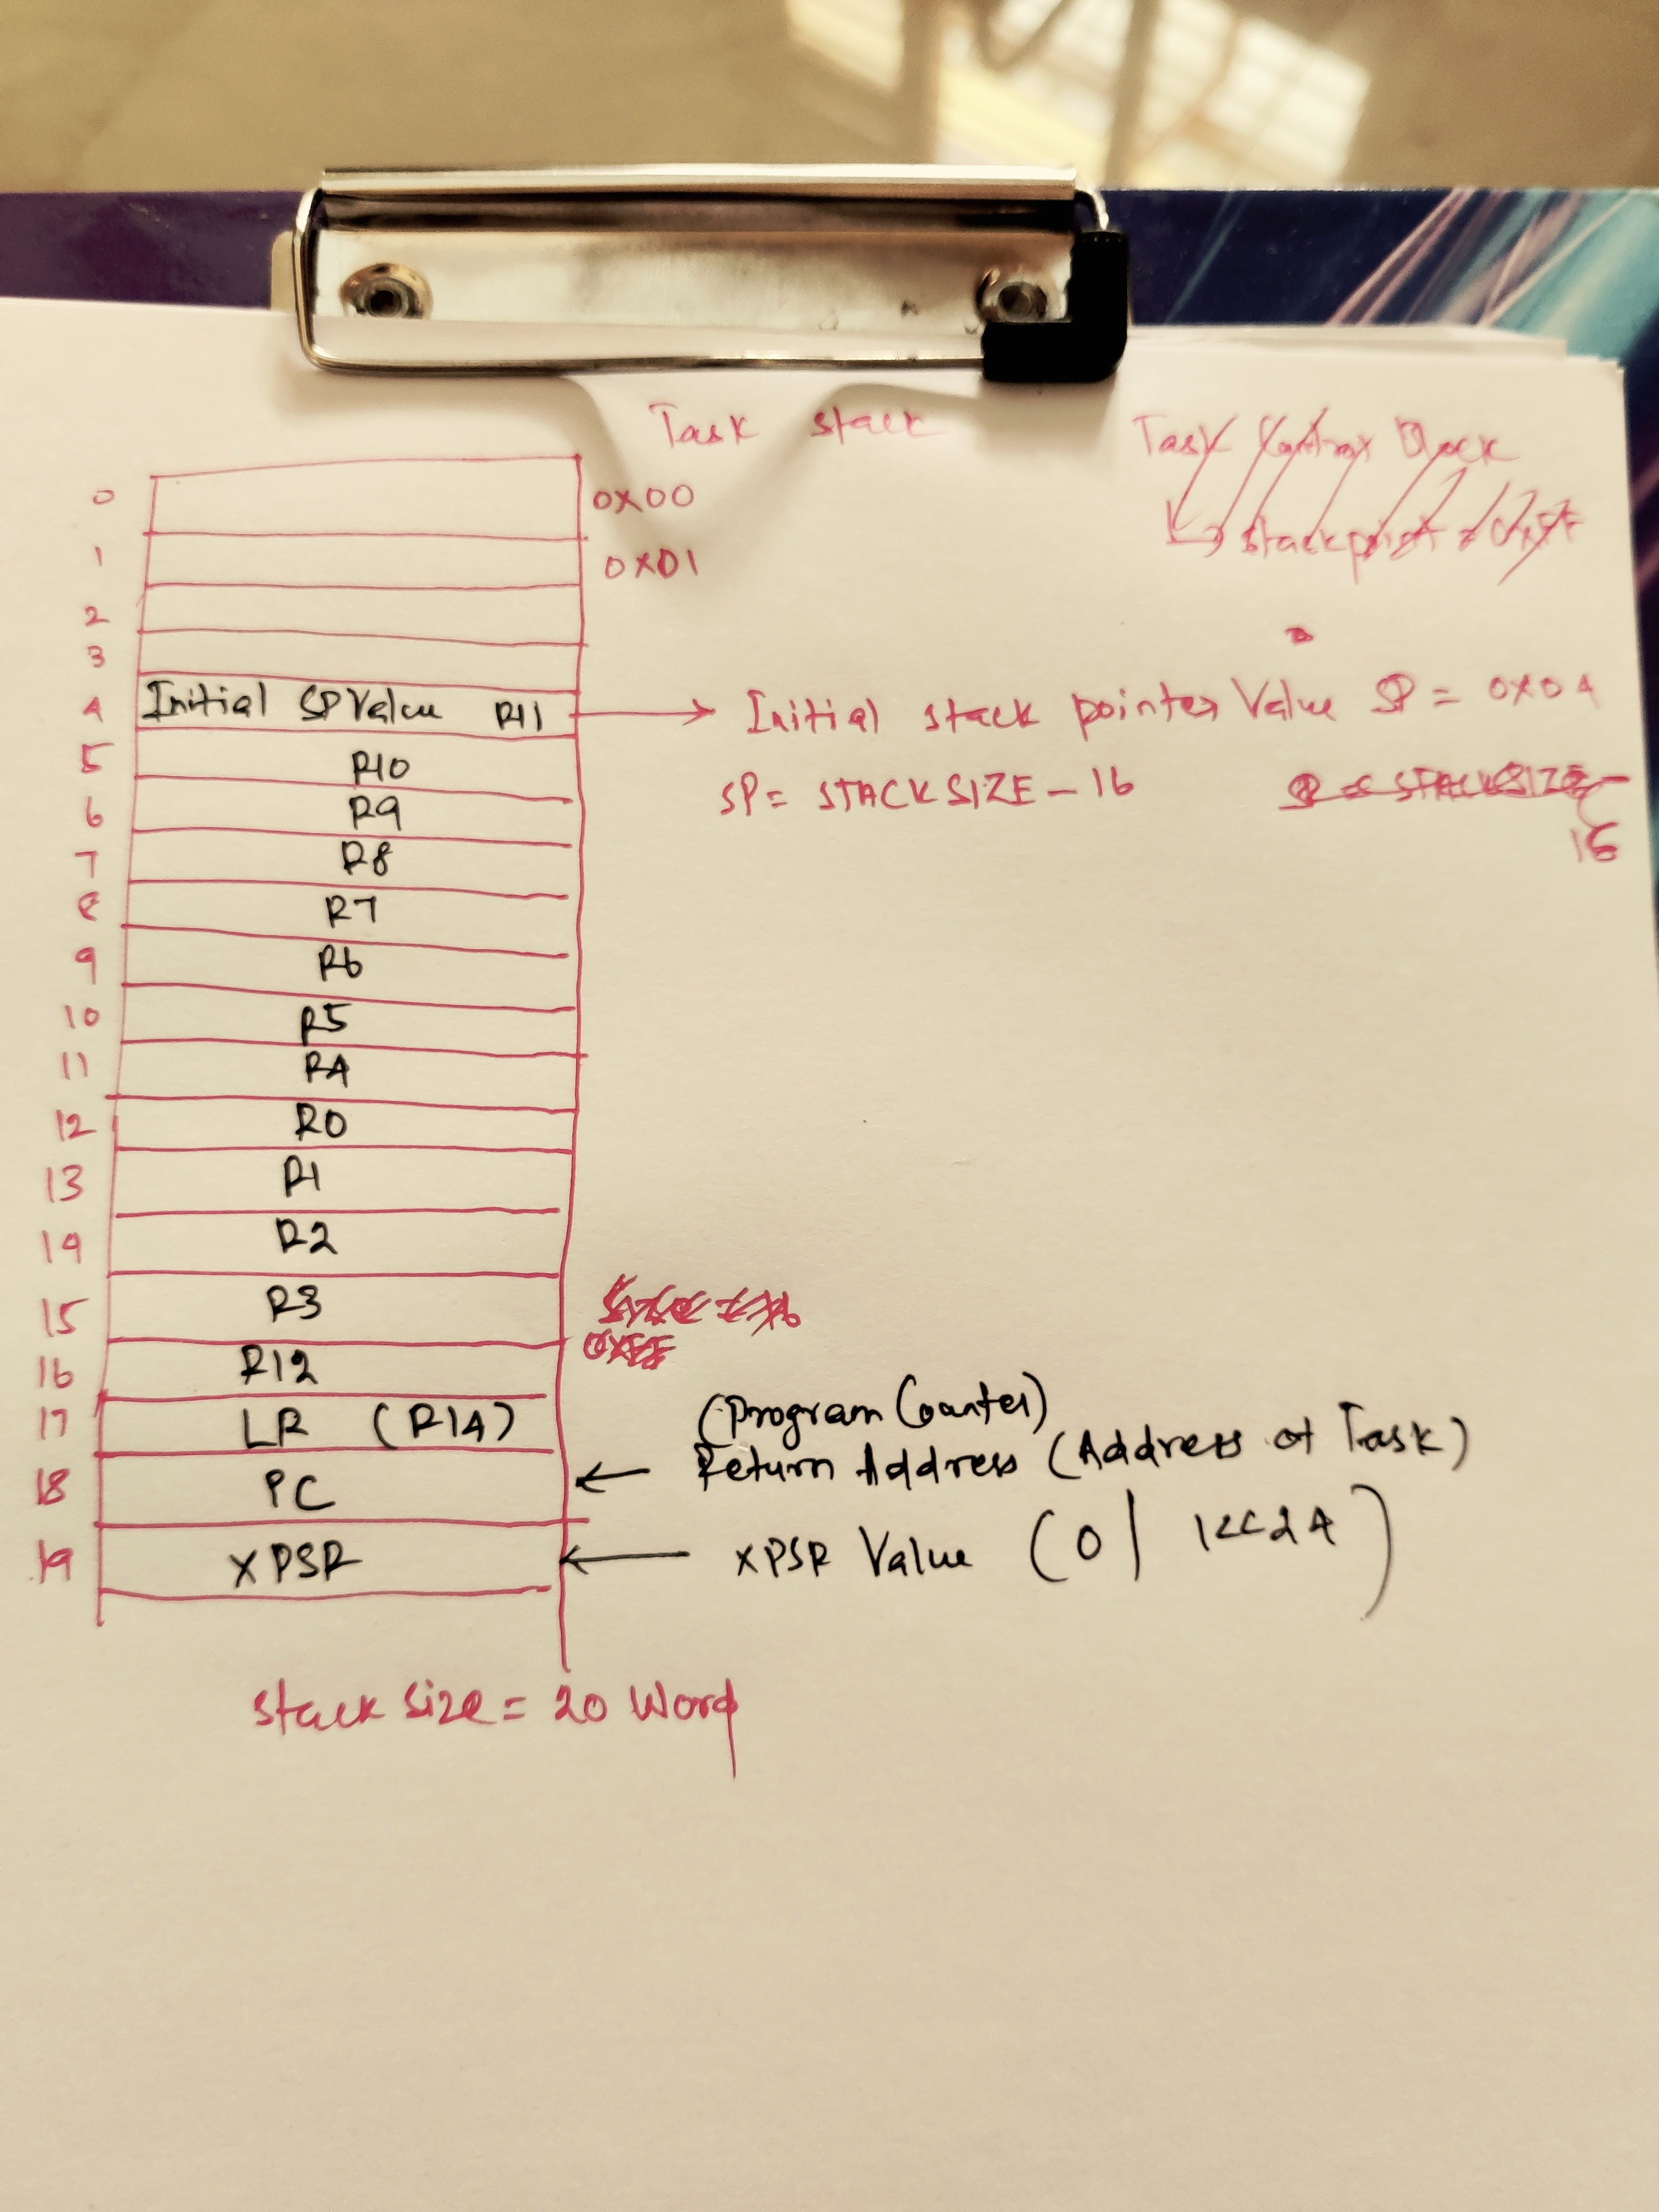 Task stack
Task Control Block
0 0x00
Stackpoint
1 0x01
2
3
4 Initial SP Value R11 Initial stack pointer Value SP = 0x04
5 R10 SP = STACKSIZE - 16 SP = STACKSIZE -
16
6 R9
7 R8
8 R7
9 R6
10 R5
11 R4
12 R0
13 R1
14 R2
15 R3
16 R12
(Program Counter)
17 LR (R14)
18 PC Return Address (Address of Task)
19 XPSR XPSR Value (0 | 1<<24)
Stack Size = 20 Word